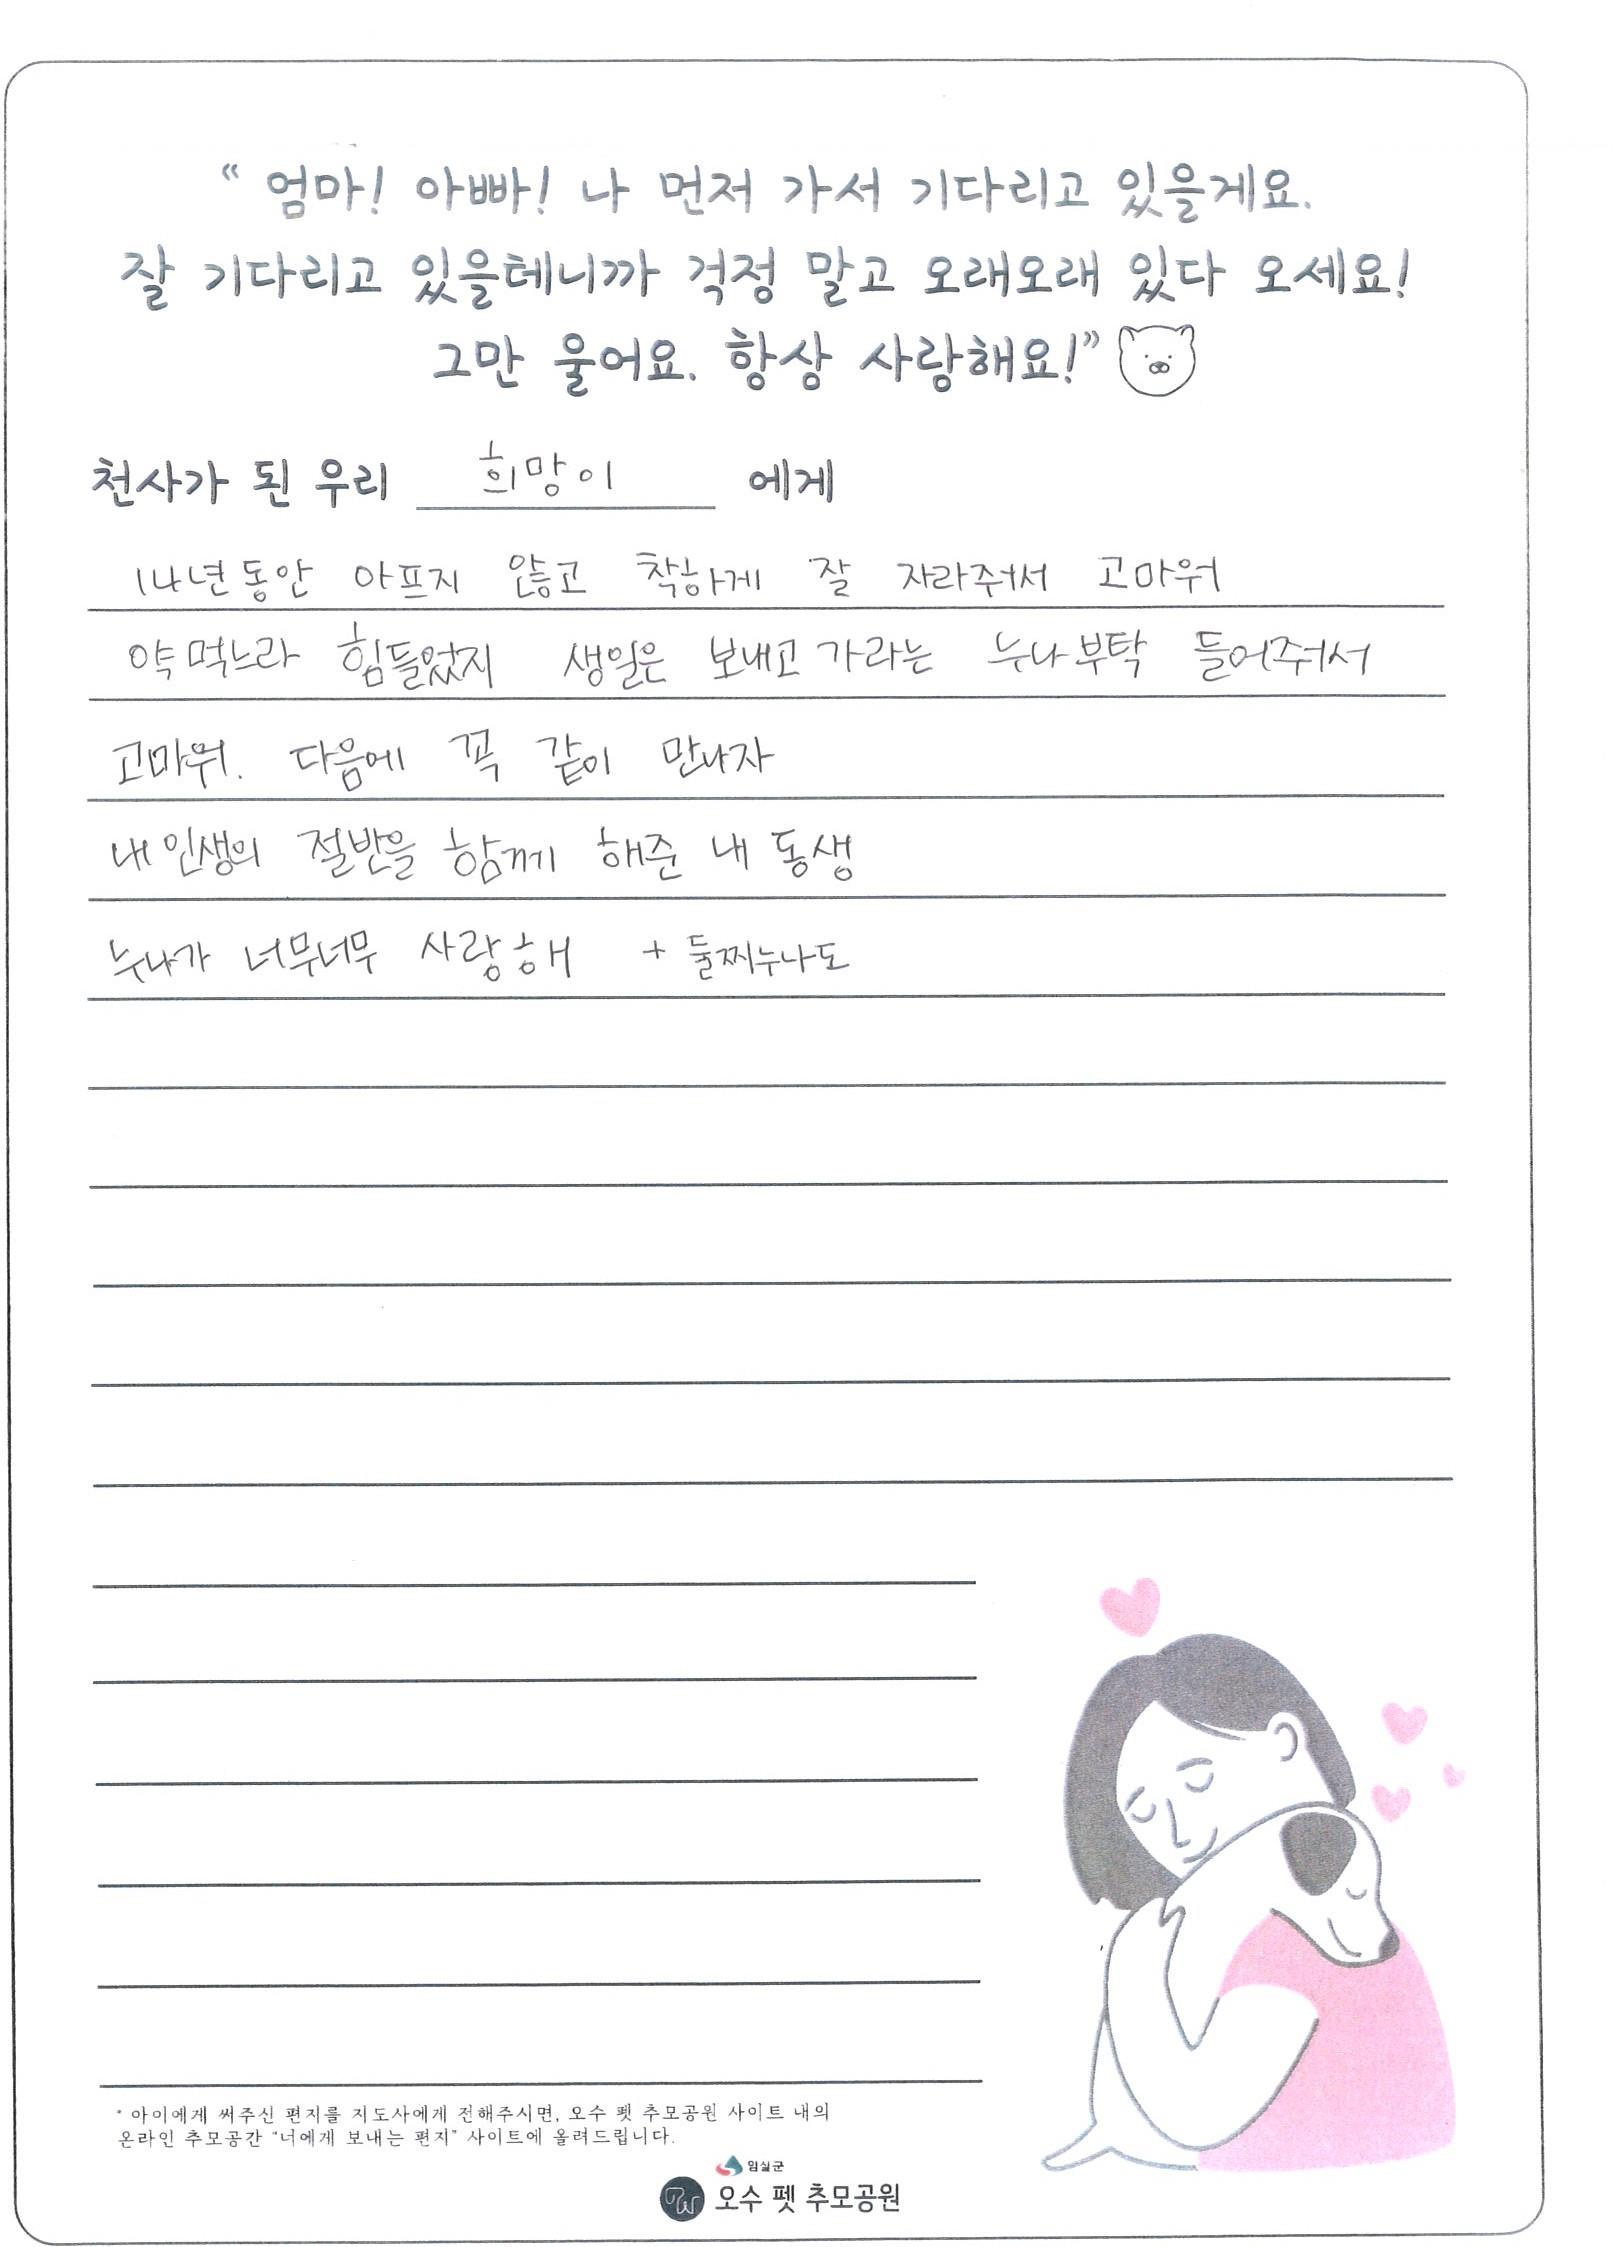 “ 엄마! 아빠! 나 먼저 가서 기다리고 있을게요.
잘 기다리고 있을테니까 걱정 말고 오래오래 있다 오세요!
그만 울어요. 항상 사랑해요!”
천사가 된 우리 희망이 에게
14년동안 아프지 않고 착하게 잘 자라줘서 고마워
약먹느라 힘들었지 생일은 보내고 가라는 누나부탁 들어줘서
고마워. 다음에 꼭 같이 만나자
내 인생의 절반을 함께 해준 내 동생
누나가 너무너무 사랑해 + 둘째누나도
* 아이에게 써주신 편지를 지도사에게 전해주시면, 오수 펫 추모공원 사이트 내의
온라인 추모공간 "너에게 보내는 편지" 사이트에 올려드립니다.
임실군
오수 펫 추모공원